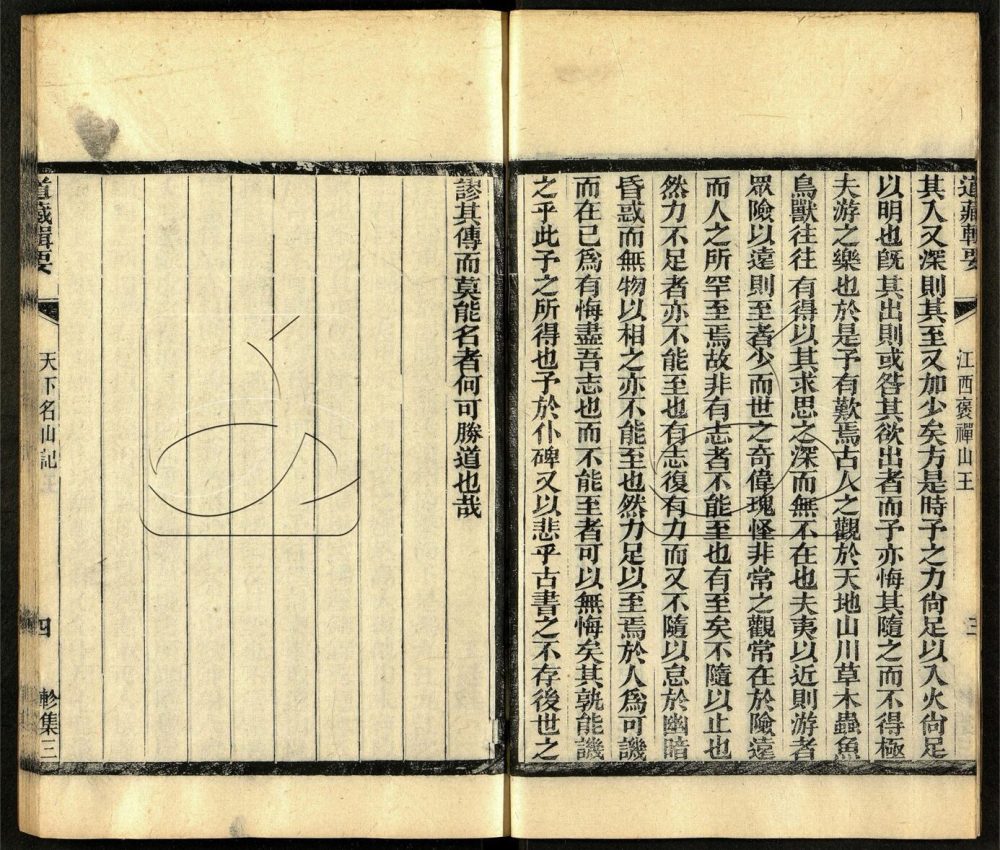 道藏輯要
江西褒禪山王
三
其入又深則其至又加少矣方是時予之力尙足以入火尙足
以明也旣其出則或咎其欲出者而予亦悔其隨之而不得極
夫游之樂也於是予有歎焉古人之觀於天地山川草木蟲魚
鳥獸往往有得以其求思之深而無不在也夫夷以近則游者
眾險以遠則至者少而世之奇偉瑰怪非常之觀常在於險遠
而人之所罕至焉故非有志者不能至也有至矣不隨以止也
然力不足者亦不能至也有志復有力而又不隨以怠於幽暗
昏惑而無物以相之亦不能至也然力足以至焉於人爲可譏
而在己爲有悔盡吾志也而不能至者可以無悔矣其孰能譏
之乎此予之所得也予於仆碑又以悲乎古書之不存後世之
謬其傳而莫能名者何可勝道也哉
道藏輯要
天下名山記
四
軫集三